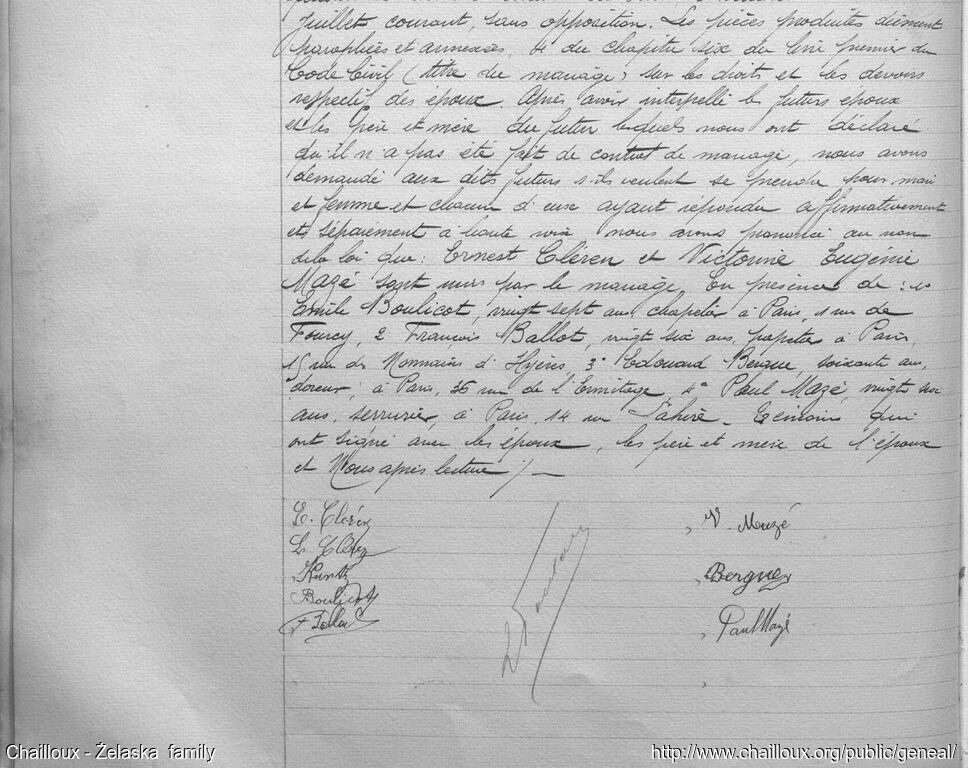 Juillet courant, sans opposition. Les pièces produites dûment
paraphées et annexées, & du chapitre six du livre premier du
Code Civil (titre du mariage) sur les droits et les devoirs
respectifs des époux. Après avoir interpellé les futurs époux
et les père et mère du futur lesquels nous ont déclaré
qu'il n'a pas été fait de contrat de mariage, nous avons
demandé aux dits futurs s'ils veulent se prendre pour mari
et femme et chacun d'eux ayant répondu affirmativement
et séparément à haute voix nous avons prononcé au nom
de la loi que: Ernest Cléren et Victorine Eugénie
Mazé sont unis par le mariage. En présence de: 1°
Emile Boulicot, vingt sept ans, chapelier à Paris, 1 rue de
Fourcy, 2 François Ballot, vingt six ans, papetier à Paris,
15 rue des Nonnains d'Hyères, 3° Edouard Bergue, soixante ans,
doreur, à Paris, 35 rue de l'Ermitage, 4° Paul Mazé, vingt six
ans, serrurier, à Paris, 14 rue Lahire. Témoins qui
ont signé avec les époux, les père et mère de l'époux
et Nous après lecture /. —
E. Cléren
V. Mazé
L. Cléren
Kuntz
Bergue
Boulicot
F Ballot
Paul Mazé
Chailloux - Żelaska family
http://www.chailloux.org/public/geneal/